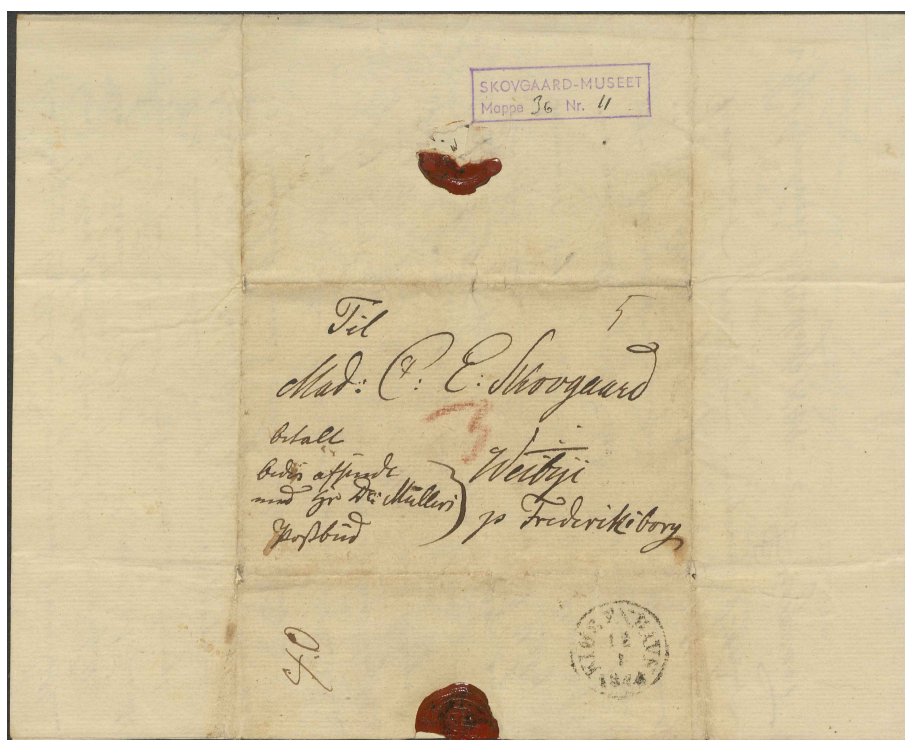 SKOVGAARD-MUSEET
Moppe 36 Nr. 11
5
Til
Mad: C: E: Skovgaard
3
betalt
bedes afsendt
med Hr Dr: Müllers
Postbud
Weibÿe
p Frederiksborg
40